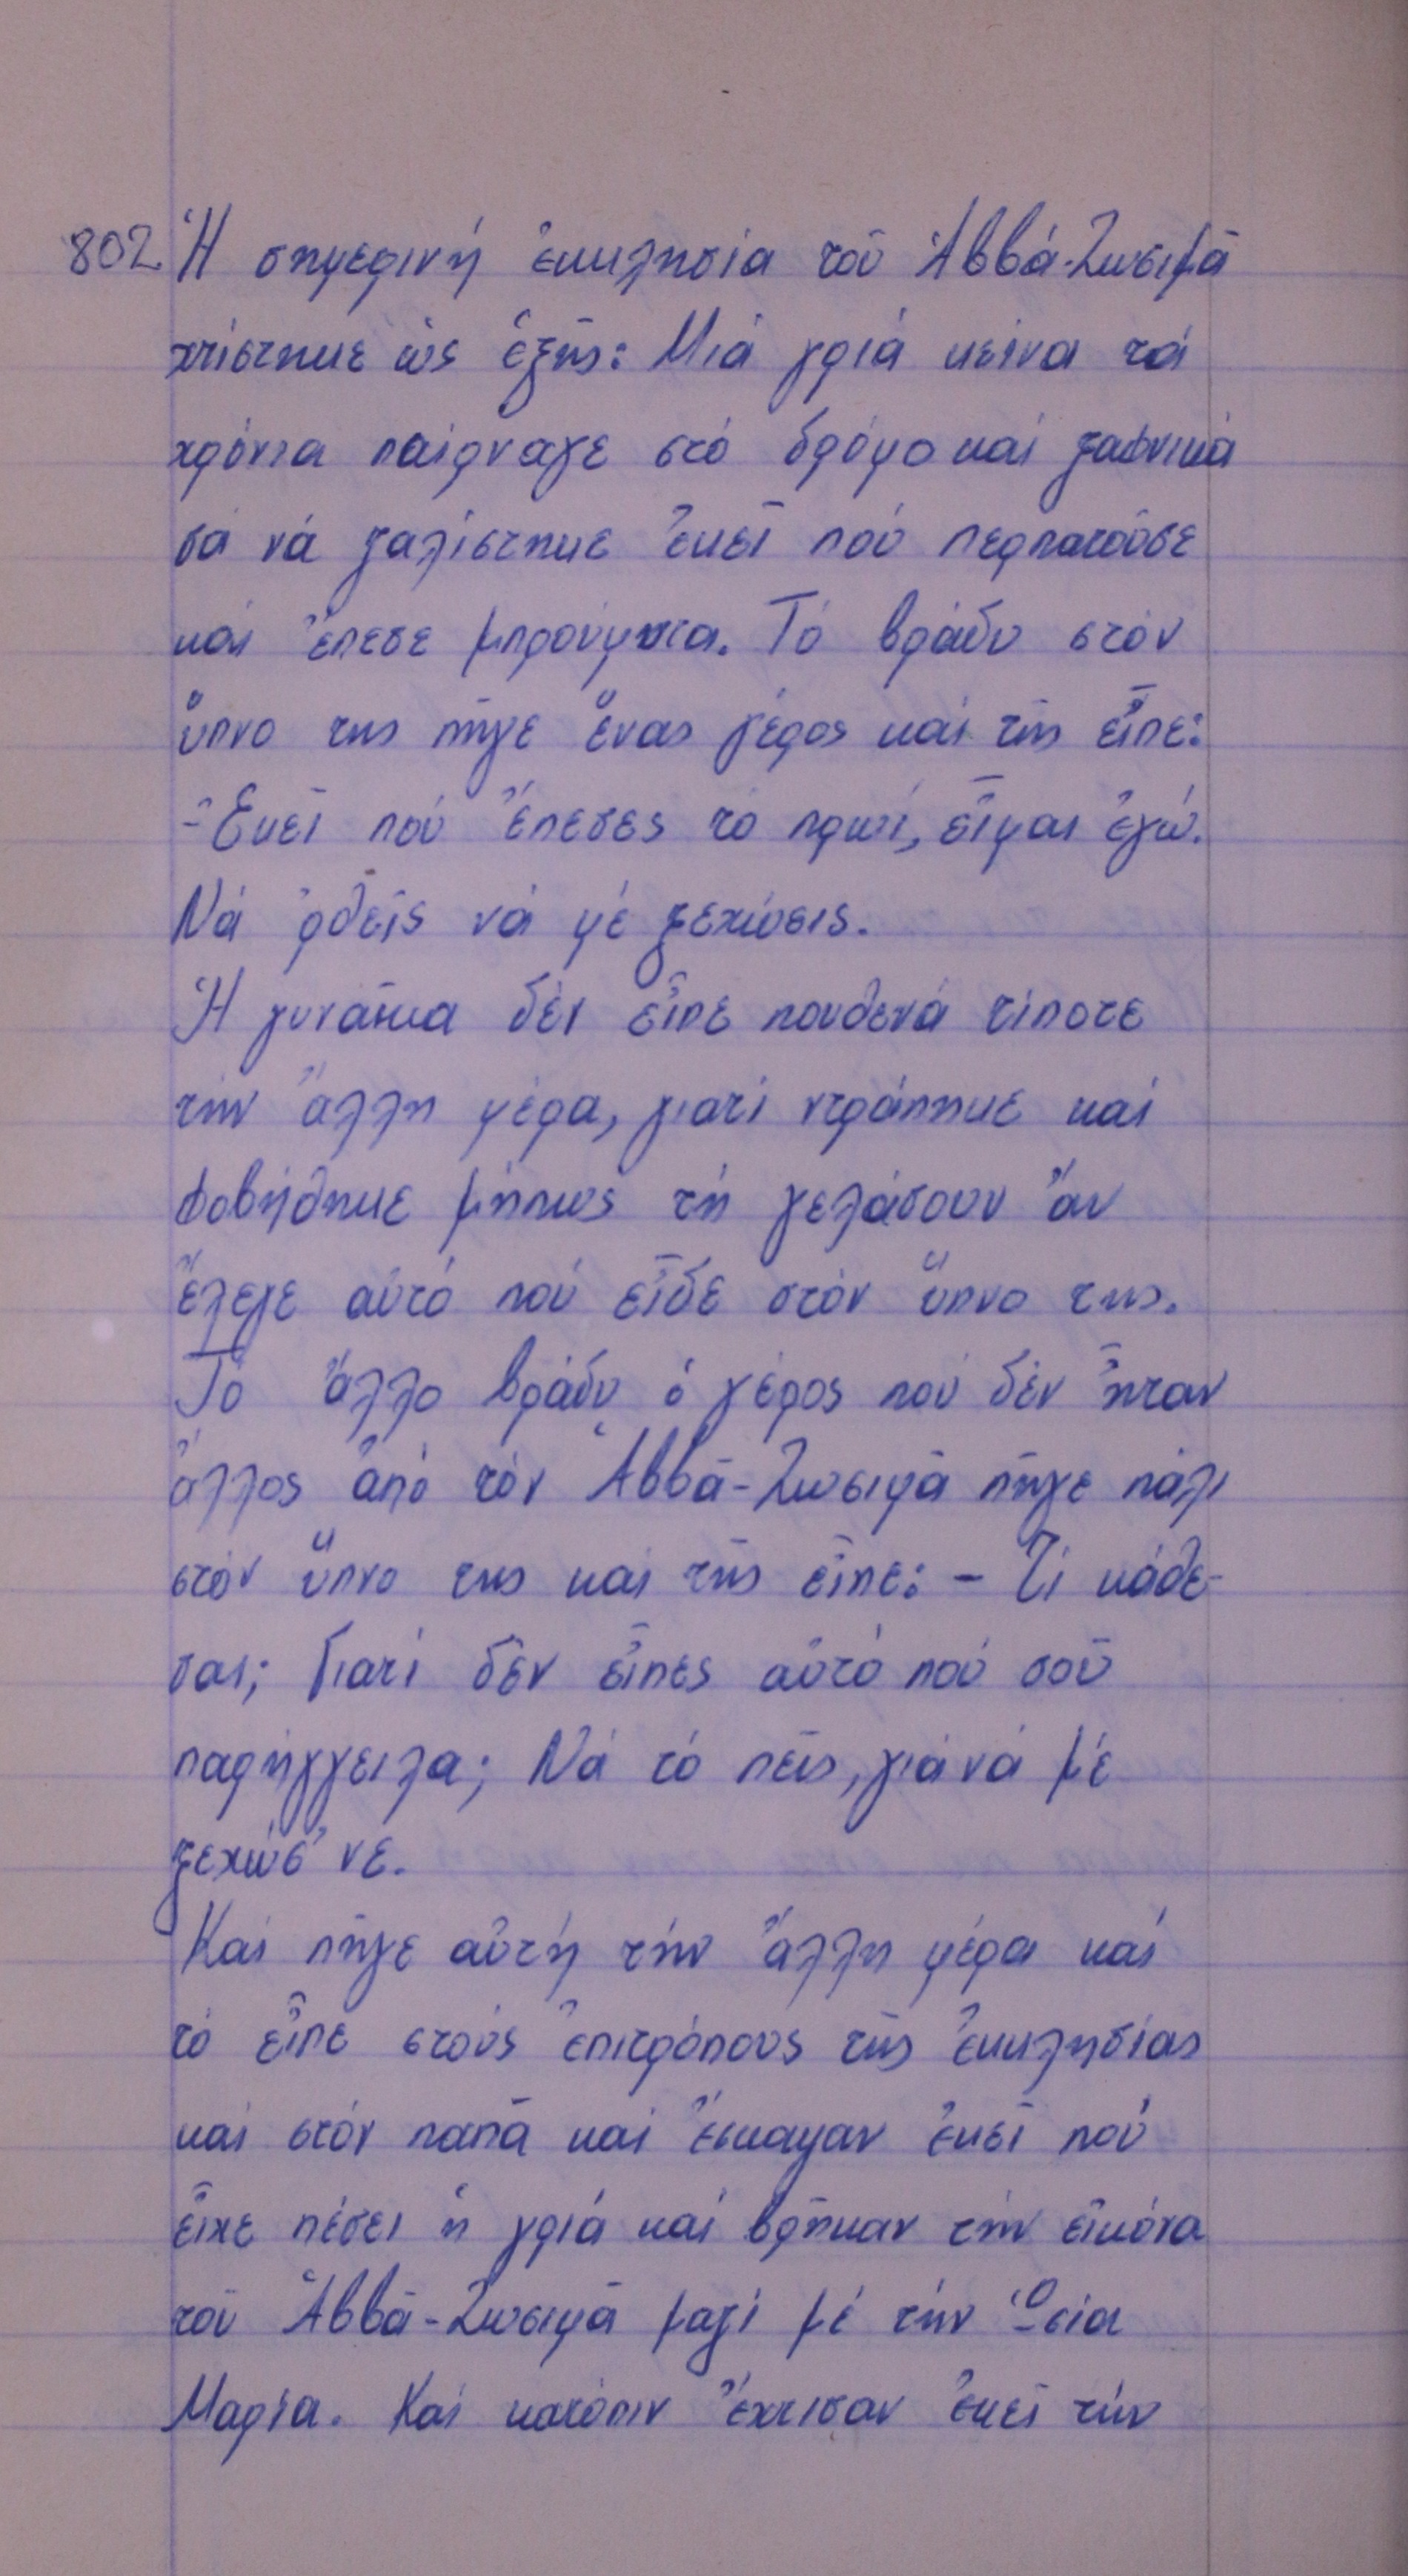 802 Ἡ σημερινή ἐκκλησία τοῦ Ἀββά-Ζωσιμᾶ
χτίστηκε ὡς ἑξῆς: Μιά γριά κείνα τά
χρόνια παίρναγε στό δρόμο καί ξαφνικά
σά νά ζαλίστηκε ἐκεῖ πού περπατοῦσε
καί ἔπεσε μπρούμυτα. Τό βράδυ στόν
ὕπνο της πῆγε ἕνας γέρος καί τῆς εἶπε:
-Ἐκεῖ πού ἔπεσες τό πρωί, εἶμαι ἐγώ.
Νά ῤθεῖς νά μέ ξεχώσεις.
Ἡ γυναῖκα δέν εἶπε πουθενά τίποτε
τήν ἄλλη μέρα, γιατί ντράπηκε καί
φοβήθηκε μήπως τή γελάσουν ἄν
ἔλεγε αὐτό πού εἶδε στόν ὕπνο της.
Τό ἄλλο βράδυ ὁ γέρος πού δέν ἦταν
ἄλλος ἀπό τόν Ἀββᾶ-Ζωσιμᾶ πῆγε πάλι
στόν ὕπνο της καί τῆς εἶπε: - Τί κάθε-
σαι; Γιατί δέν εἶπες αὐτό πού σοῦ
παρήγγειλα; Νά τό πεῖς, γιά νά μέ
ξεχώσ' νε.
Καί πῆγε αὐτή τήν ἄλλη μέρα καί
τό εἶπε στούς ἐπιτρόπους τῆς ἐκκλησίας
καί στόν παπᾶ καί ἔσκαψαν ἐκεῖ πού
εἶχε πέσει ἡ γριά καί βρῆκαν τήν εἰκόνα
τοῦ Ἀββᾶ-Ζωσιμᾶ μαζί μέ τήν Ὁσία
Μαρία. Καί κατόπιν ἔχτισαν ἐκεῖ τήν